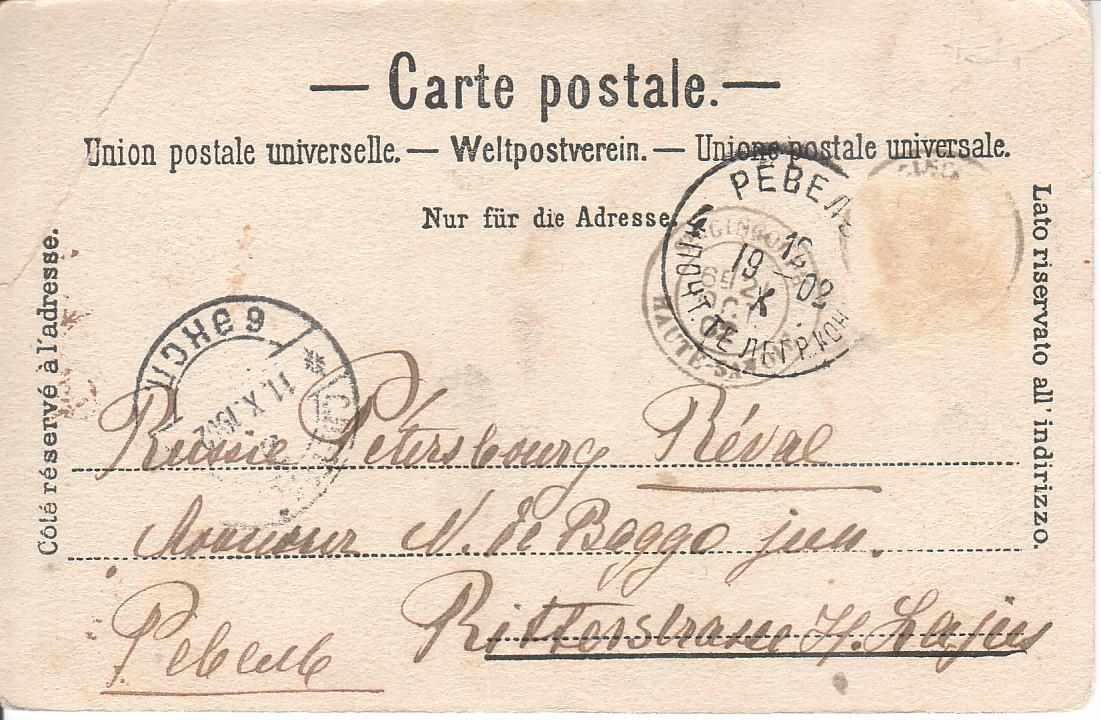 — Carte postale. —
Union postale universelle. — Weltpostverein. — Unione postale universale.
Nur für die Adresse.
Côté réservé à l'adresse.
Lato riservato all' indirizzo.
РЕВЕЛ
19 X 02
ПОЧ. ТЕЛЕГР. КОН
HAUTE-SA
11.X.1902
Russie Pétersbourg Réval
Monsieur N. de Baggo jun.
Ревель Ritterstrasse H.